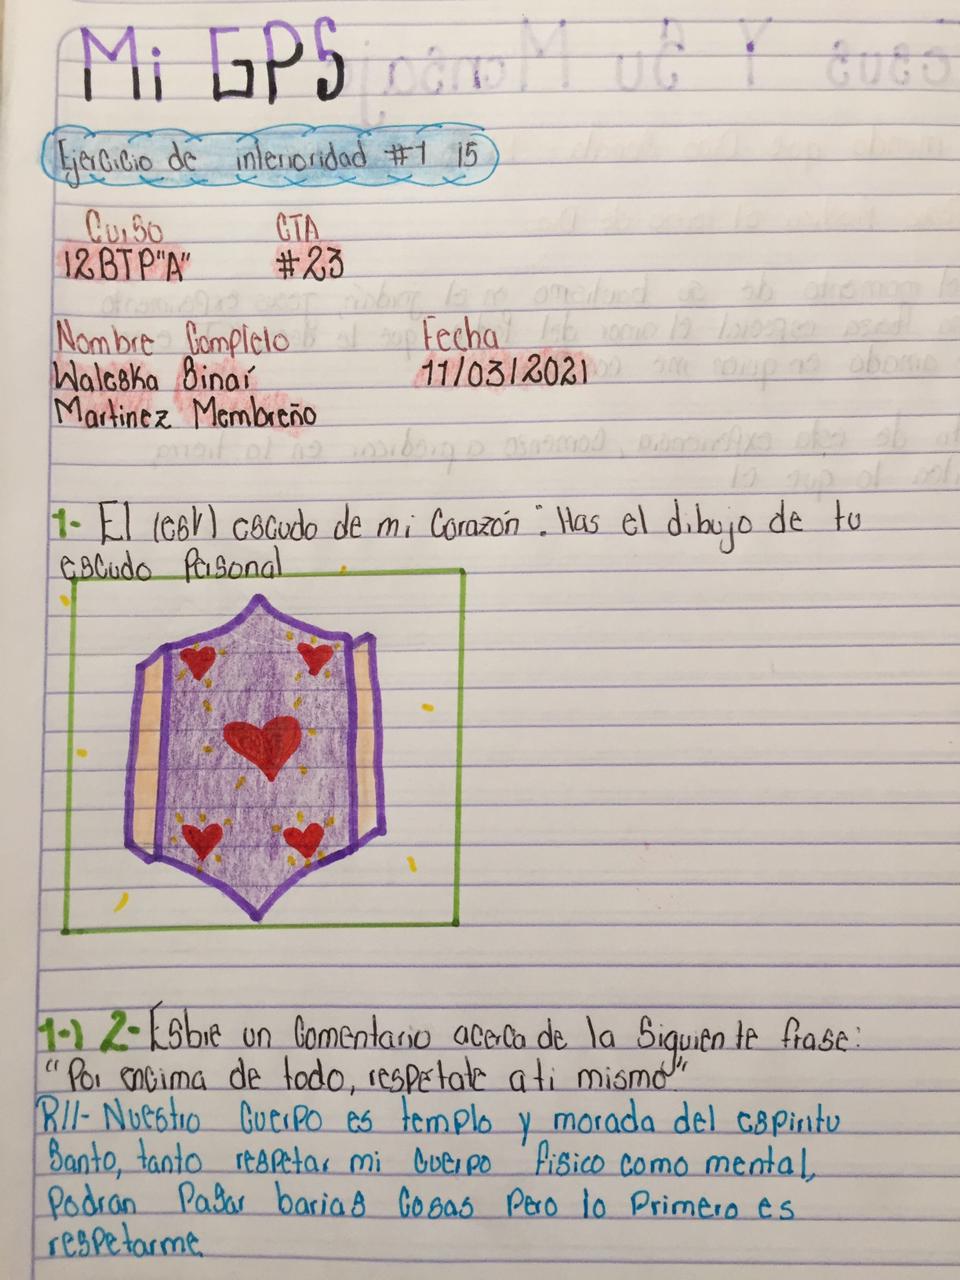 Mi GPS
Ejercicio de interioridad #1 15
Curso CTA
12BTP"A" #23
Nombre Completo Fecha
Waleska Sinaí 11/03/2021
Martinez Membreño
1- El escudo de mi Corazón : Has el dibujo de tu
escudo Personal
1-) 2- Esbre un Comentario acerca de la Siguiente frase:
"Por encima de todo, respetate a ti mismo"
R// - Nuestro Cuerpo es templo y morada del espiritu
Santo, tanto respetar mi Cuerpo fisico como mental,
Podran Pasar barias Cosas Pero lo Primero es
respetarme